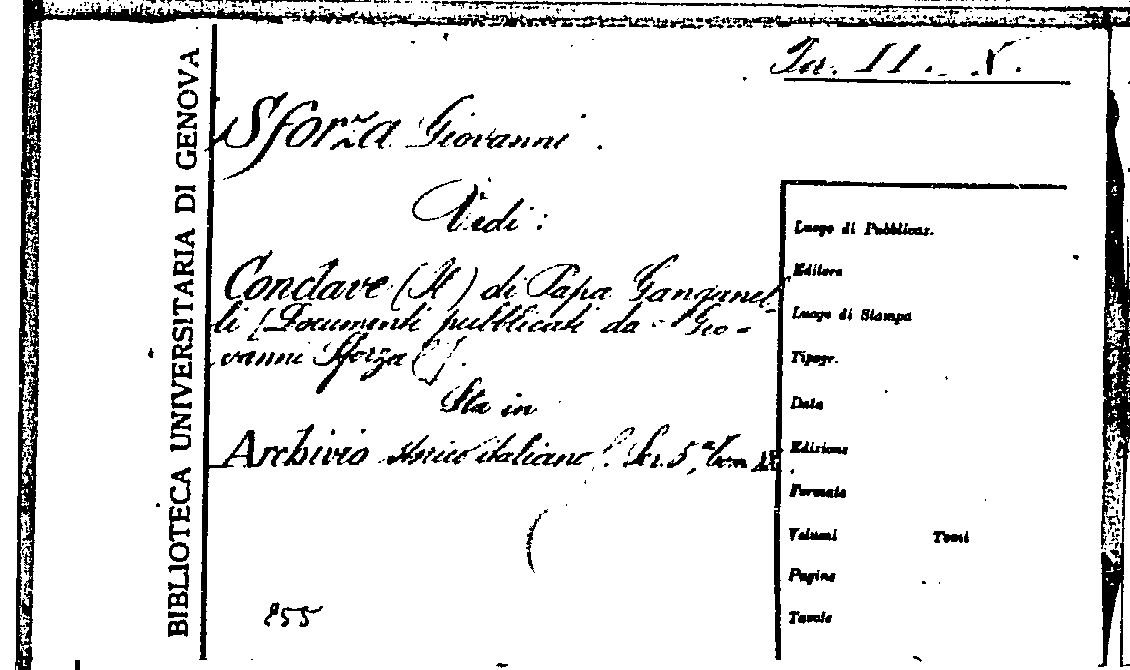 BIBLIOTECA UNIVERSITARIA DI GENOVA
Ser. II. V.
Sforza Giovanni.
Vedi:
Conclave (Il) di Papa Ganganel-
li (Documenti pubblicati da Gio-
vanni Sforza).
Sta in
Archivio storico italiano. Ser. 5ª tom
855
Luogo di Pubblicaz.
Editore
Luogo di Stampa
Tipogr.
Data
Edizione
Formato
Volumi Tomi
Pagine
Tavole